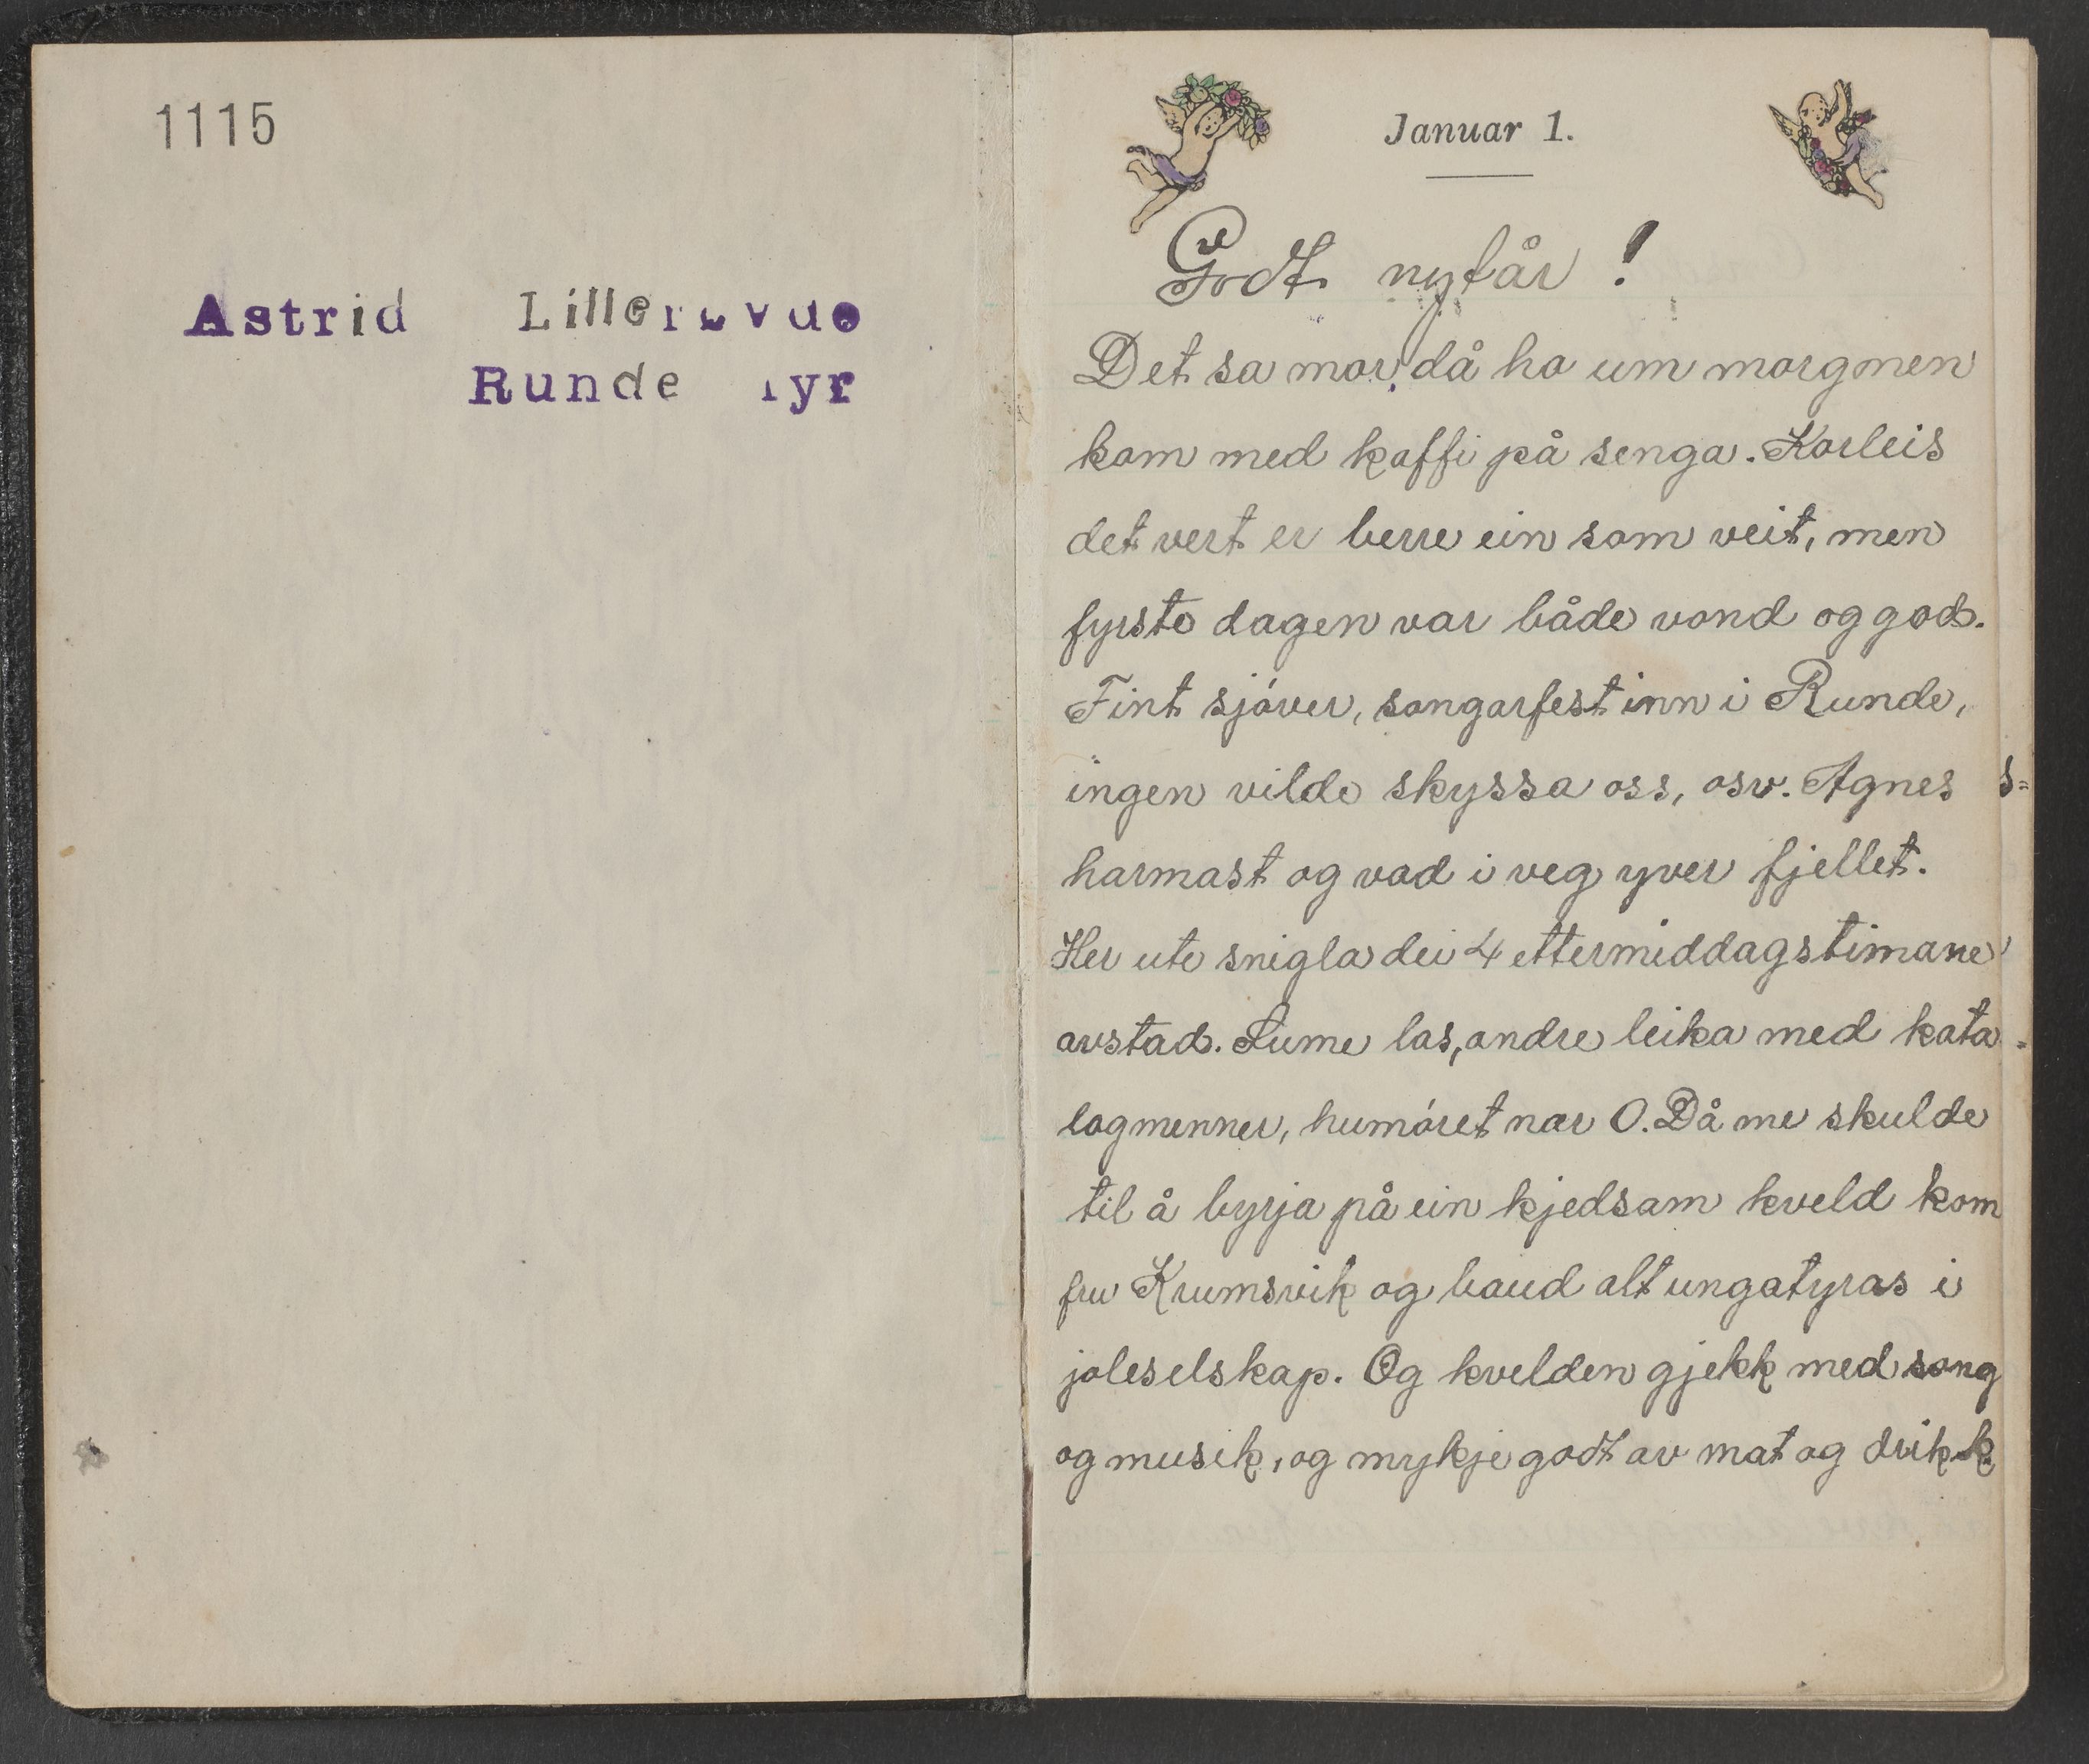 1115
Astrid
Runde fyr
Januar 1.
Godt nytår!
Det sa mor, då ho um morgmen
kom med kaffi på senga. Korleis
det vert er berre ein som veit, men
fyrste dagen var både vond og god.
Fint sjóver, songarfest inn i Runde,
ingen vilde skyssa oss, osv. Agnes
harmast og vod i veg yver fjellet.
Her ute snigla dei 4 ettermiddagstimane
avstad. Sume las, andre leika med kata-
logmenner, humóret var 0. Då me skulde
til å byrja på ein kjedsam kveld kom
fru Krumsvik og baud alt ungatyras i
joleselskap. Og kvelden gjekk med song
og musik, og mykje godt av mat og drikk
s=